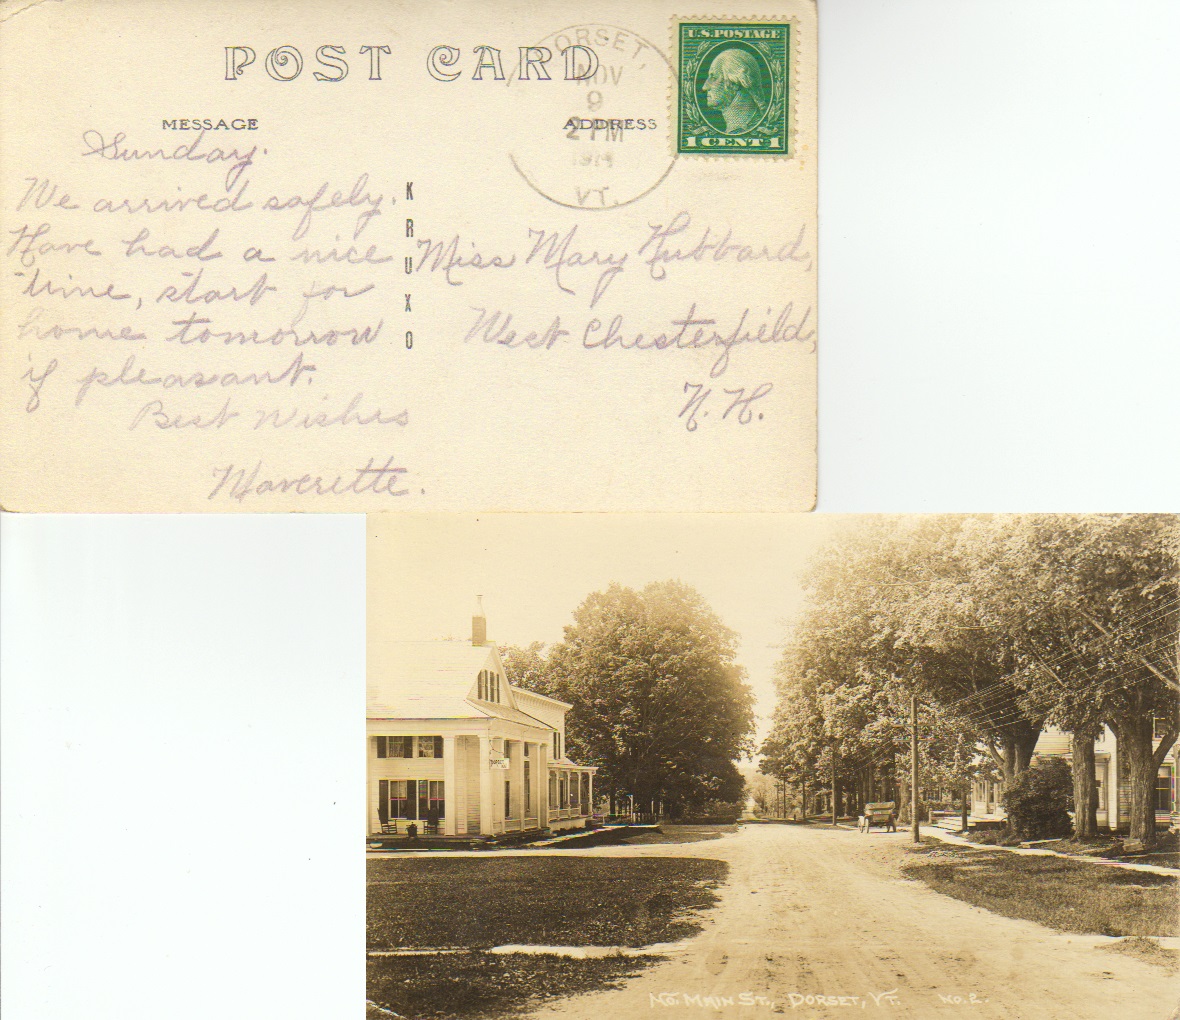 POST CARD
MESSAGE
ADDRESS
DORSET,
NOV
9
2 PM
1914
VT.
U.S. POSTAGE
1 CENT 1
Sunday.
We arrived safely.
Have had a nice
time, start for
home tomorrow
if pleasant.
Best Wishes
Maverette.
KRUXO
Miss Mary Hubbard,
West Chesterfield,
N. H.
DORSET
No. Main St., Dorset, Vt. No. 2.